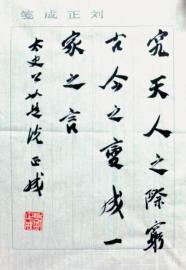 刘正成笺
究天人之際窮
古今之變成一
家之言
太史公 正成